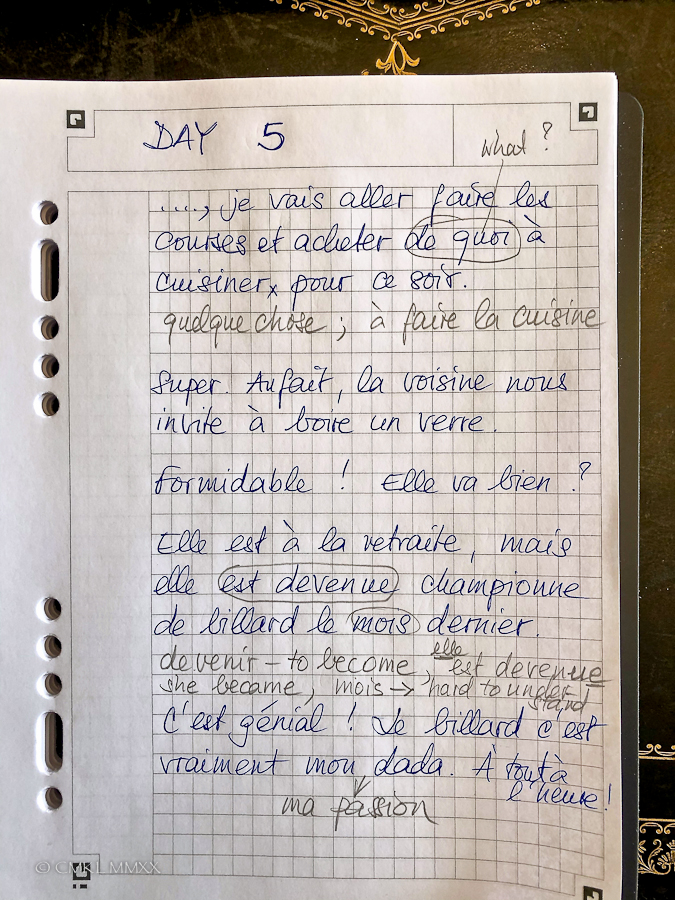 DAY 5
what?
...., je vais aller faire les
courses et acheter de quoi à
cuisiner, pour ce soir.
quelque chose ; à faire la cuisine
Super. Au fait, la voisine nous
invite à boire un verre.
Formidable ! Elle va bien ?
Elle est à la retraite, mais
elle est devenue championne
de billard le mois dernier.
devenir – to become, elle est devenue
she became, mois → hard to understand!
C'est génial ! Le billard c'est
vraiment mon dada. À tout à
l'heure!
ma passion
© CMKL MMXX